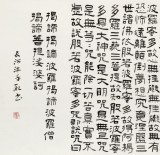 波羅蜜多故心無罣礙無罣礙故無有
恐怖遠離顛倒夢想究竟涅槃三
世諸佛依般若波羅蜜多故得阿耨
多羅三藐三菩提故知般若波羅蜜
多是大神咒是大明咒是無上咒
是無等等咒能除一切苦真實不
虛故說般若波羅蜜多咒即說咒曰
揭諦揭諦波羅揭諦波羅僧
揭諦菩提娑婆訶